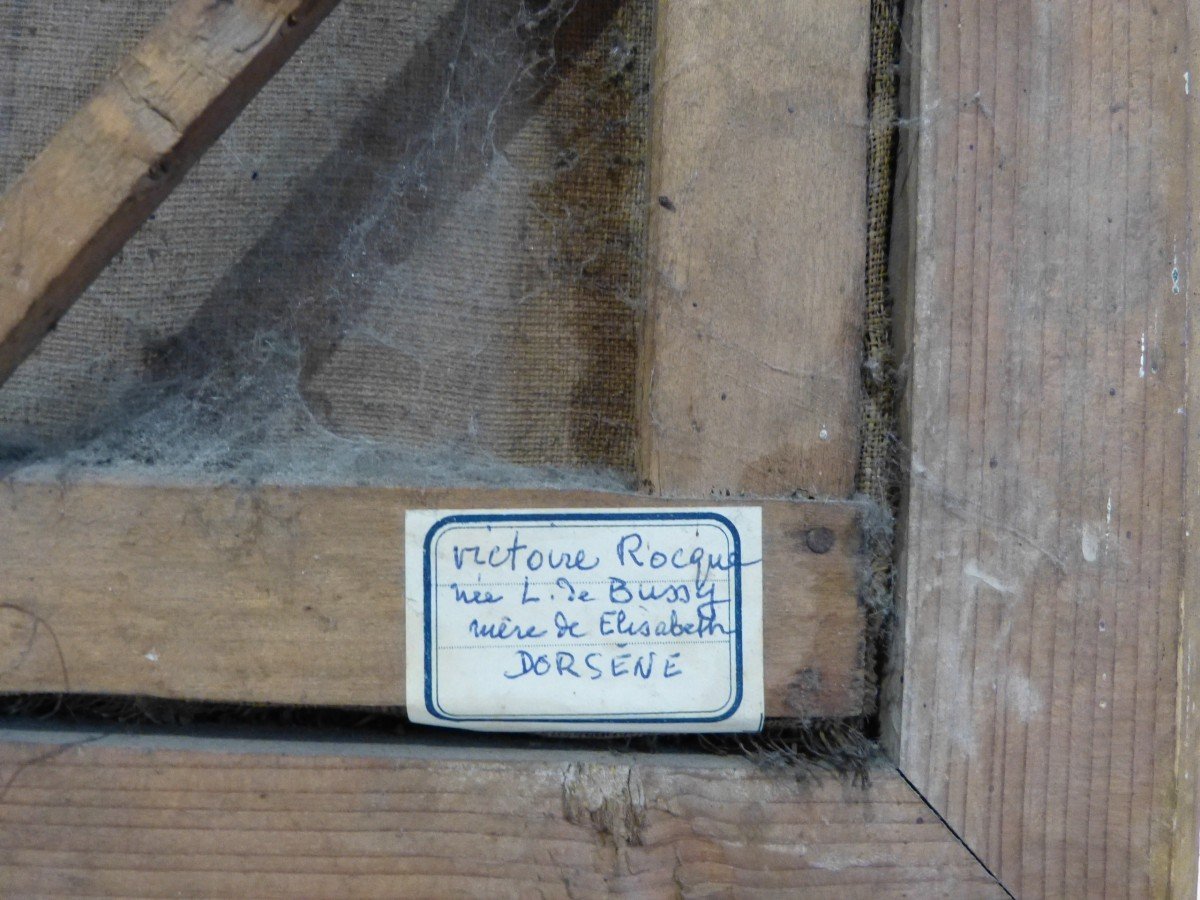 victoire Rocque
née L. de Bussy
mère de Elisabeth
DORSÈNE